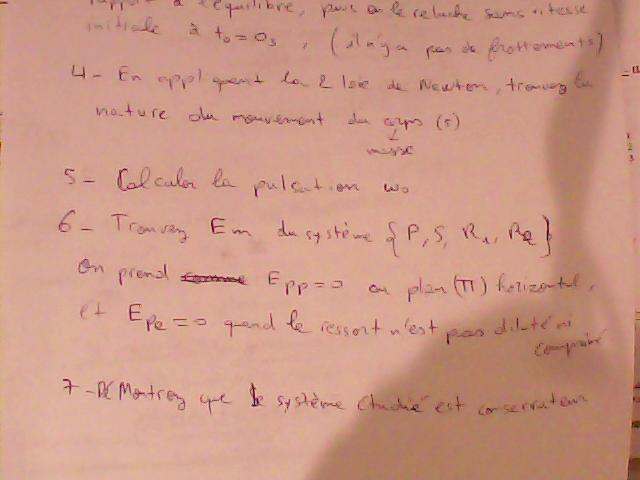 rapport à l'équilibre, puis on le relache sans vitesse
initiale à t₀=0s, (il n'y a pas de frottements)
4- En appliquent la 2 loie de Newton, trouvez la
nature du mouvement du corps (s)
masse
5- Calculer la pulsation w₀
6- Trouvez Em du système {P, S, R₁, R2}
on prend Epp=0 au plan (π) horizontal,
et Epe=0 quand le ressort n'est pas dilaté ni
comprimé
7- Montrez que le système étudié est conservateur